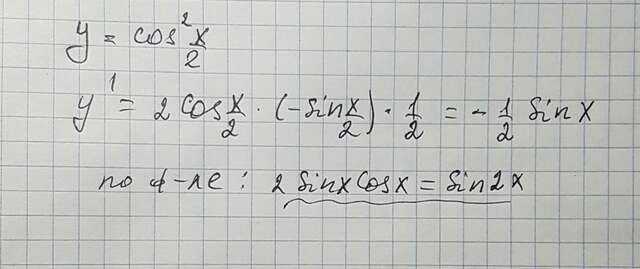 y = cos² x/2
y' = 2 cos x/2 · (-sin x/2) · 1/2 = - 1/2 sin x
по ф-ле : 2 sinx cosx = sin2x